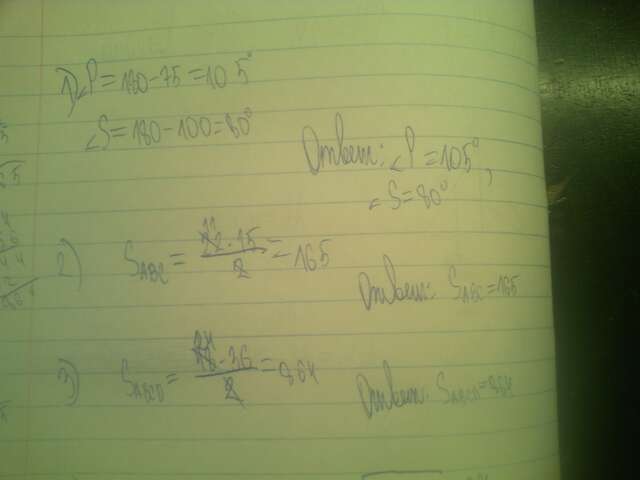 1) ∠P = 180 - 75 = 105°
∠S = 180 - 100 = 80°
Ответ: ∠P = 105°,
∠S = 80°
2) S_ABC = 22 · 15 / 2 = 165
Ответ: S_ABC = 165
3) S_ABCD = 48 · 36 / 2 = 864
Ответ: S_ABCD = 864